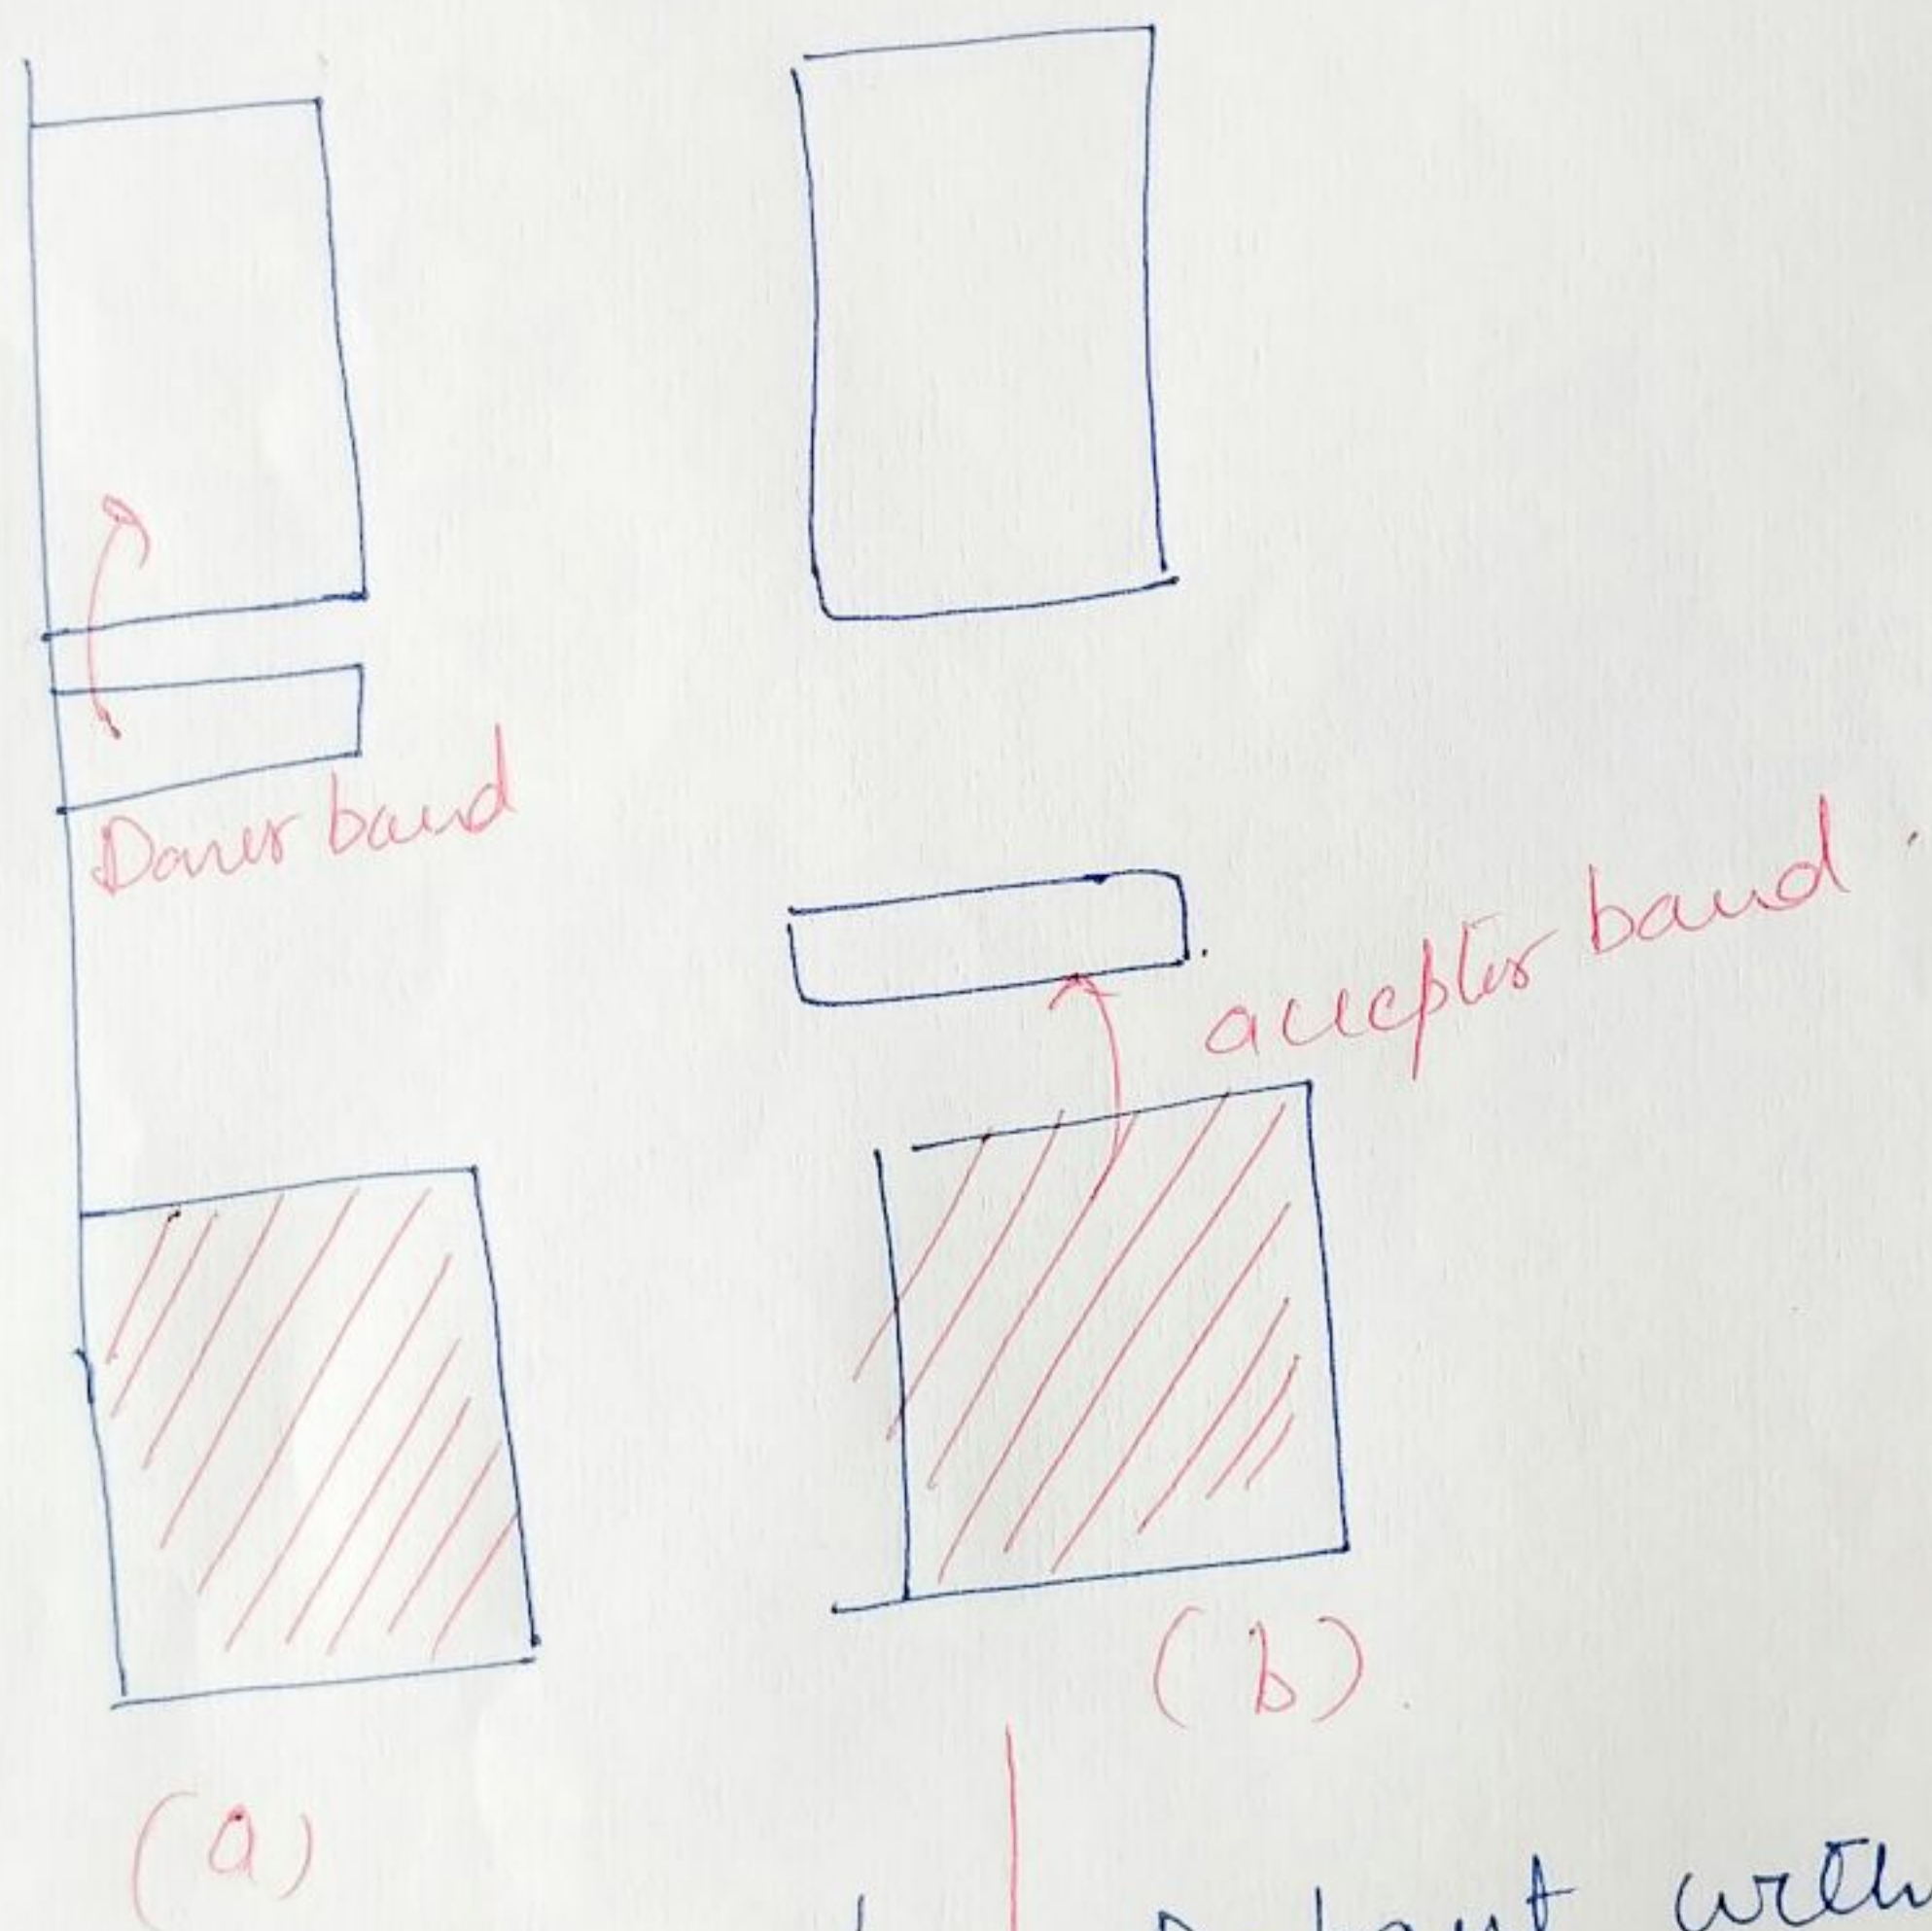 Doner band
accepter band.
(b)
(a)
with